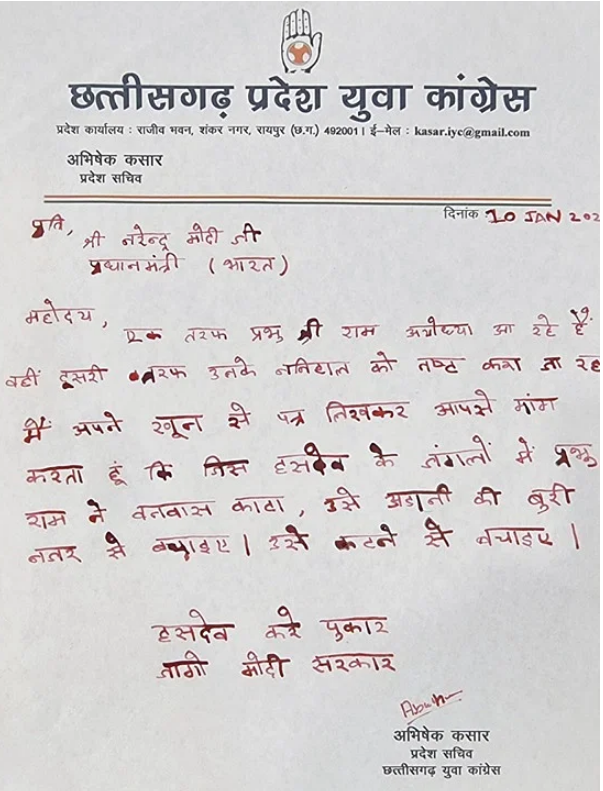 छत्तीसगढ़ प्रदेश युवा कांग्रेस
प्रदेश कार्यालय : राजीव भवन, शंकर नगर, रायपुर (छ.ग.) 492001। ई-मेल : kasar.iyc@gmail.com
अभिषेक कसार
प्रदेश सचिव
दिनांक 10 JAN 202
प्रति,
श्री नरेन्द्र मोदी जी
प्रधानमंत्री (भारत)
महोदय,
एक तरफ प्रभु श्री राम अयोध्या आ रहे हैं
वहीं दूसरी तरफ उनके ननिहाल को नष्ट करा जा रह
मैं अपने खून से पत्र लिखकर आपसे मांग
करता हूं कि जिस हसदेव के जंगलों में प्रभु
राम ने वनवास काटा, उसे अडानी की बुरी
नजर से बचाइए। उसे कटने से बचाइए।
हसदेव करे पुकार
जागो मोदी सरकार
अभिषेक कसार
प्रदेश सचिव
छत्तीसगढ़ युवा कांग्रेस